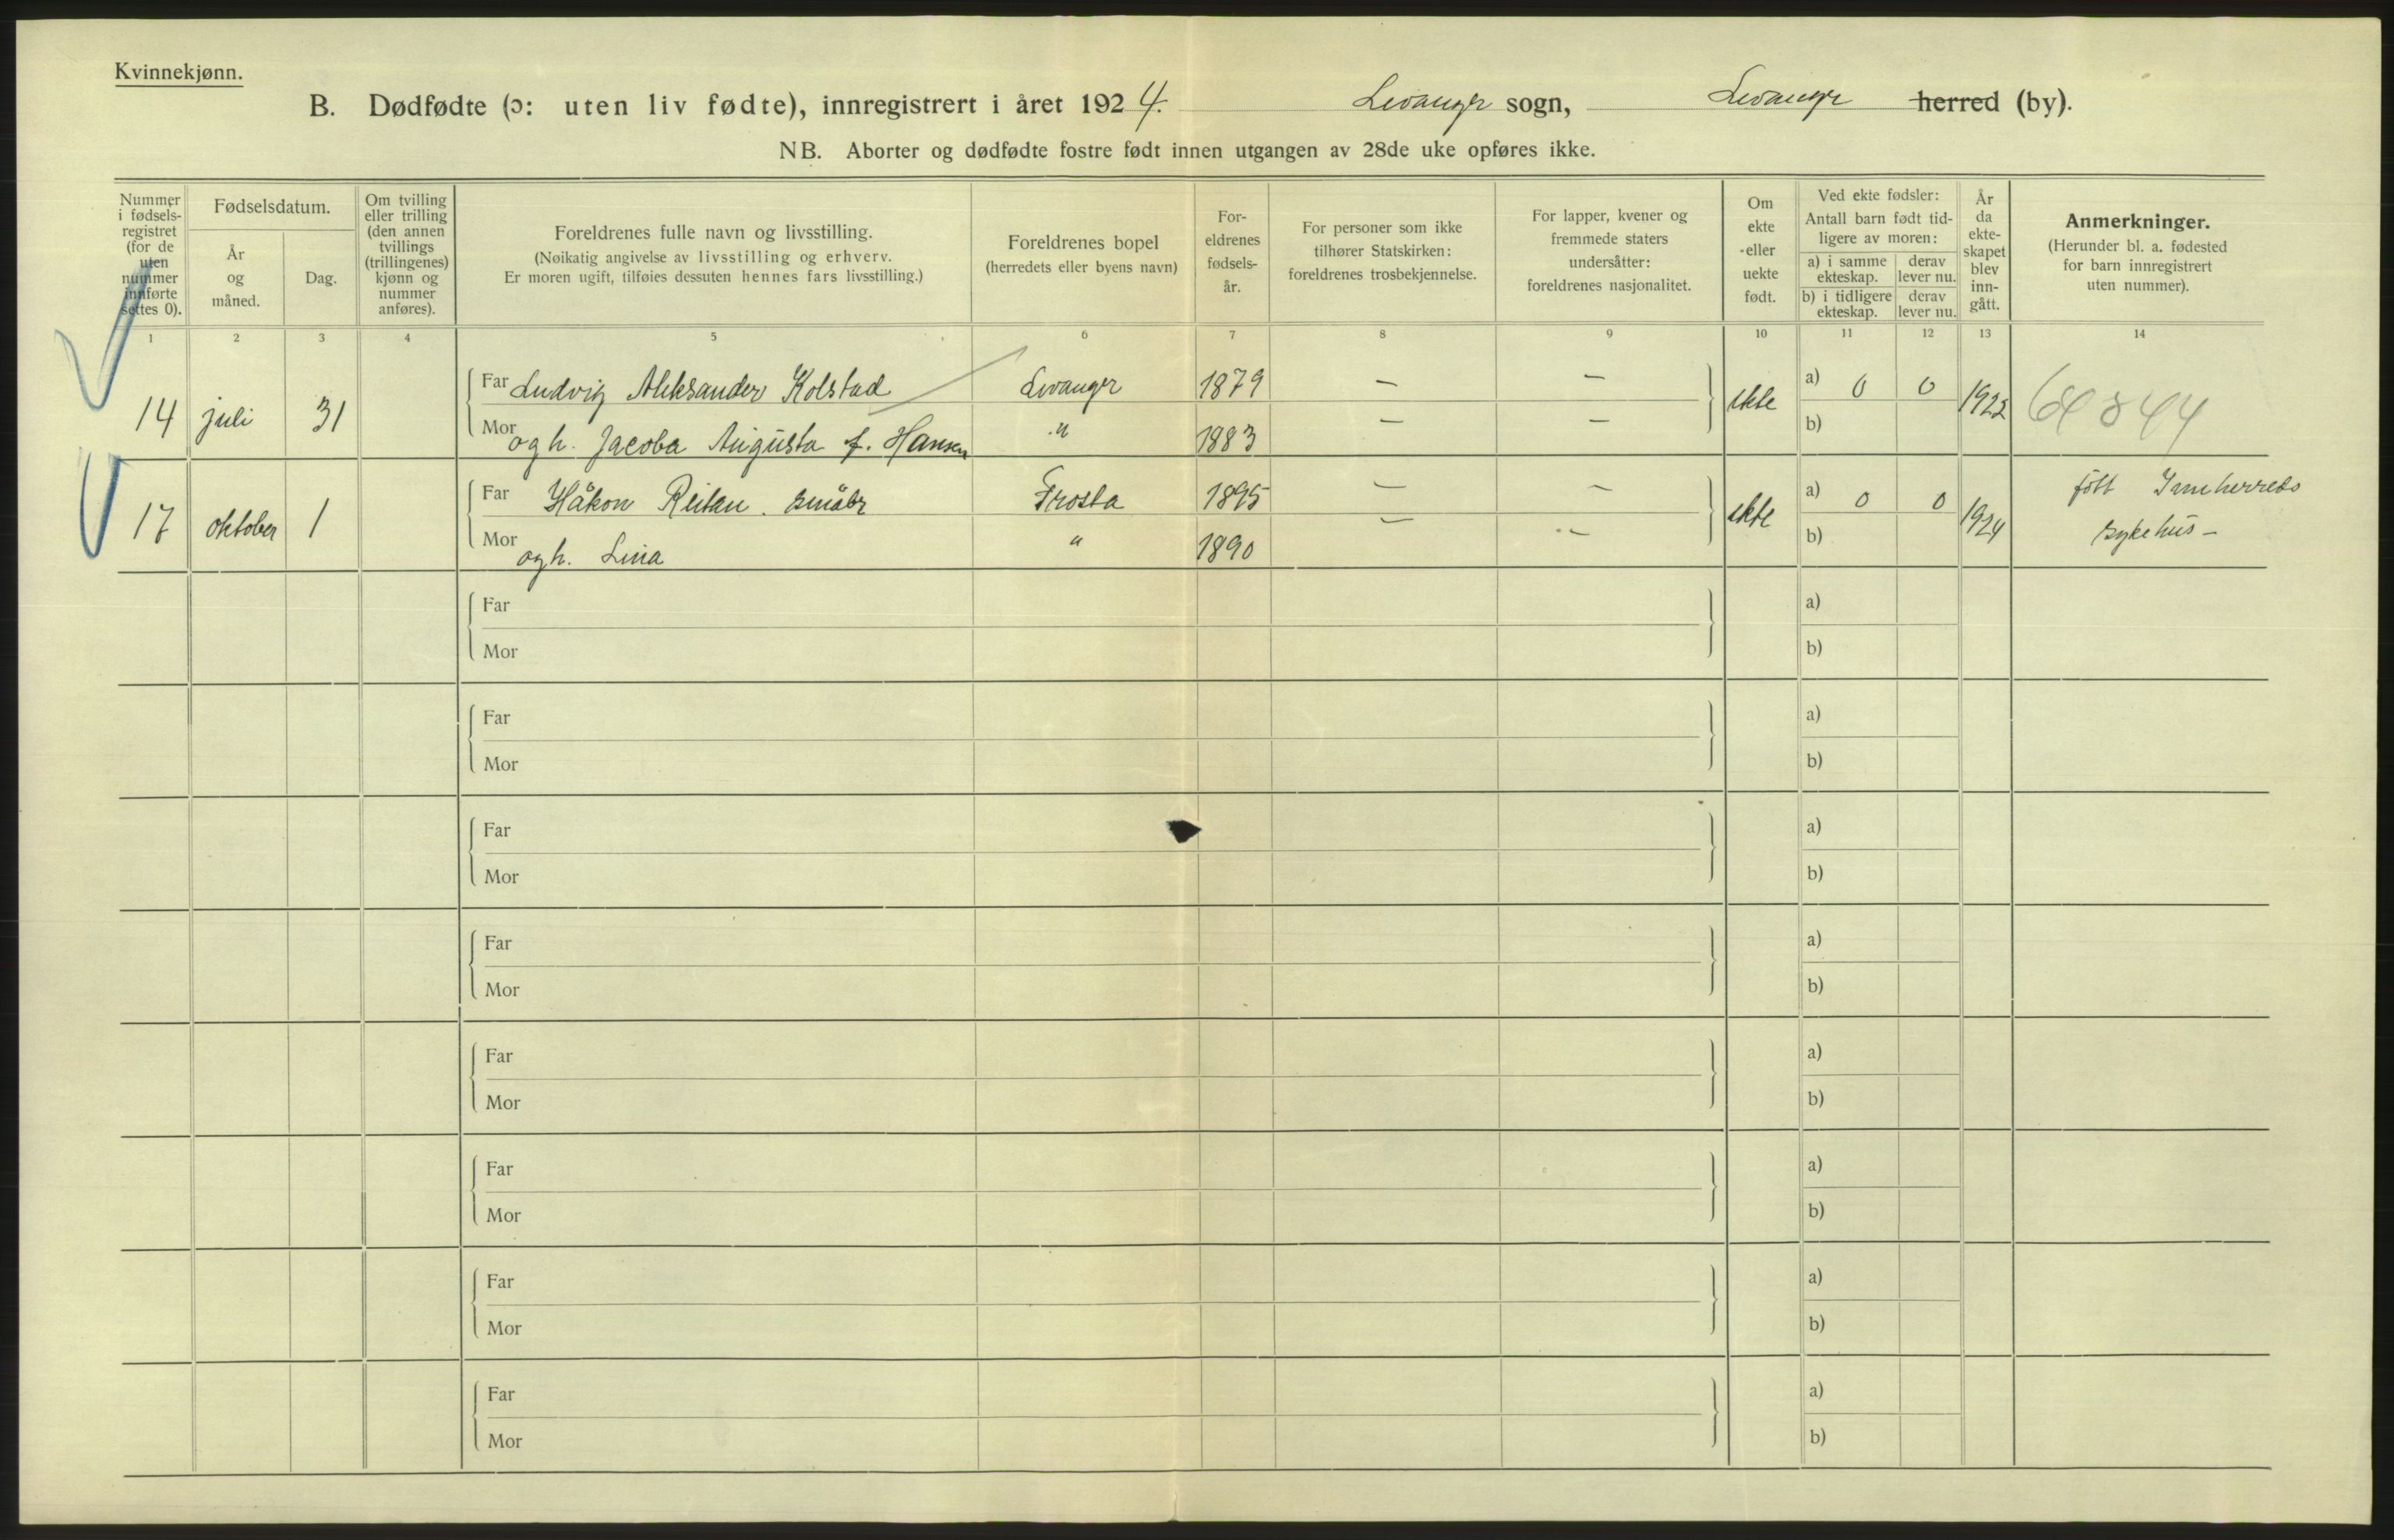 Kvinnekjønn.
B. Dødfødte (ɔ: uten liv fødte), innregistrert i året 1924. Levanger sogn, Levanger herred (by).
NB. Aborter og dødfødte fostre født innen utgangen av 28de uke opføres ikke.
Nummer i fødsels- registret (for de uten nummer innførte settes 0).
Fødselsdatum.
År og måned.
Dag.
Om tvilling eller trilling (den annen tvillings (trillingenes) kjønn og nummer anføres).
Foreldrenes fulle navn og livsstilling.
(Nøikatig angivelse av livsstilling og erhverv.
Er moren ugift, tilføies dessuten hennes fars livsstilling.)
Foreldrenes bopel
(herredets eller byens navn)
For- eldrenes fødsels- år.
For personer som ikke tilhører Statskirken: foreldrenes trosbekjennelse.
For lapper, kvener og fremmede staters undersåtter: foreldrenes nasjonalitet.
Om ekte eller uekte født.
Ved ekte fødsler:
Antall barn født tid- ligere av moren:
a) i samme ekteskap.
derav lever nu.
b) i tidligere ekteskap.
derav lever nu.
År da ekte- skapet blev inn- gått.
Anmerkninger.
(Herunder bl. a. fødested for barn innregistrert uten nummer).
1 2 3 4 5 6 7 8 9 10 11 12 13 14
14 juli 31 Far Ludvig Aleksander Kolstad Levanger 1879 — — ekte a) 0 0 1922
Mor og h. Jacoba Augusta f. Hansen " 1883 — — b)
17 oktober 1 Far Håkon Reitan. småbr Frosta 1895 — — ekte a) 0 0 1924 født Innherreds
Mor og h. Lina " 1890 — — b) sykehus —
Far a)
Mor b)
Far a)
Mor b)
Far a)
Mor b)
Far a)
Mor b)
Far a)
Mor b)
Far a)
Mor b)
Far a)
Mor b)
Far a)
Mor b)